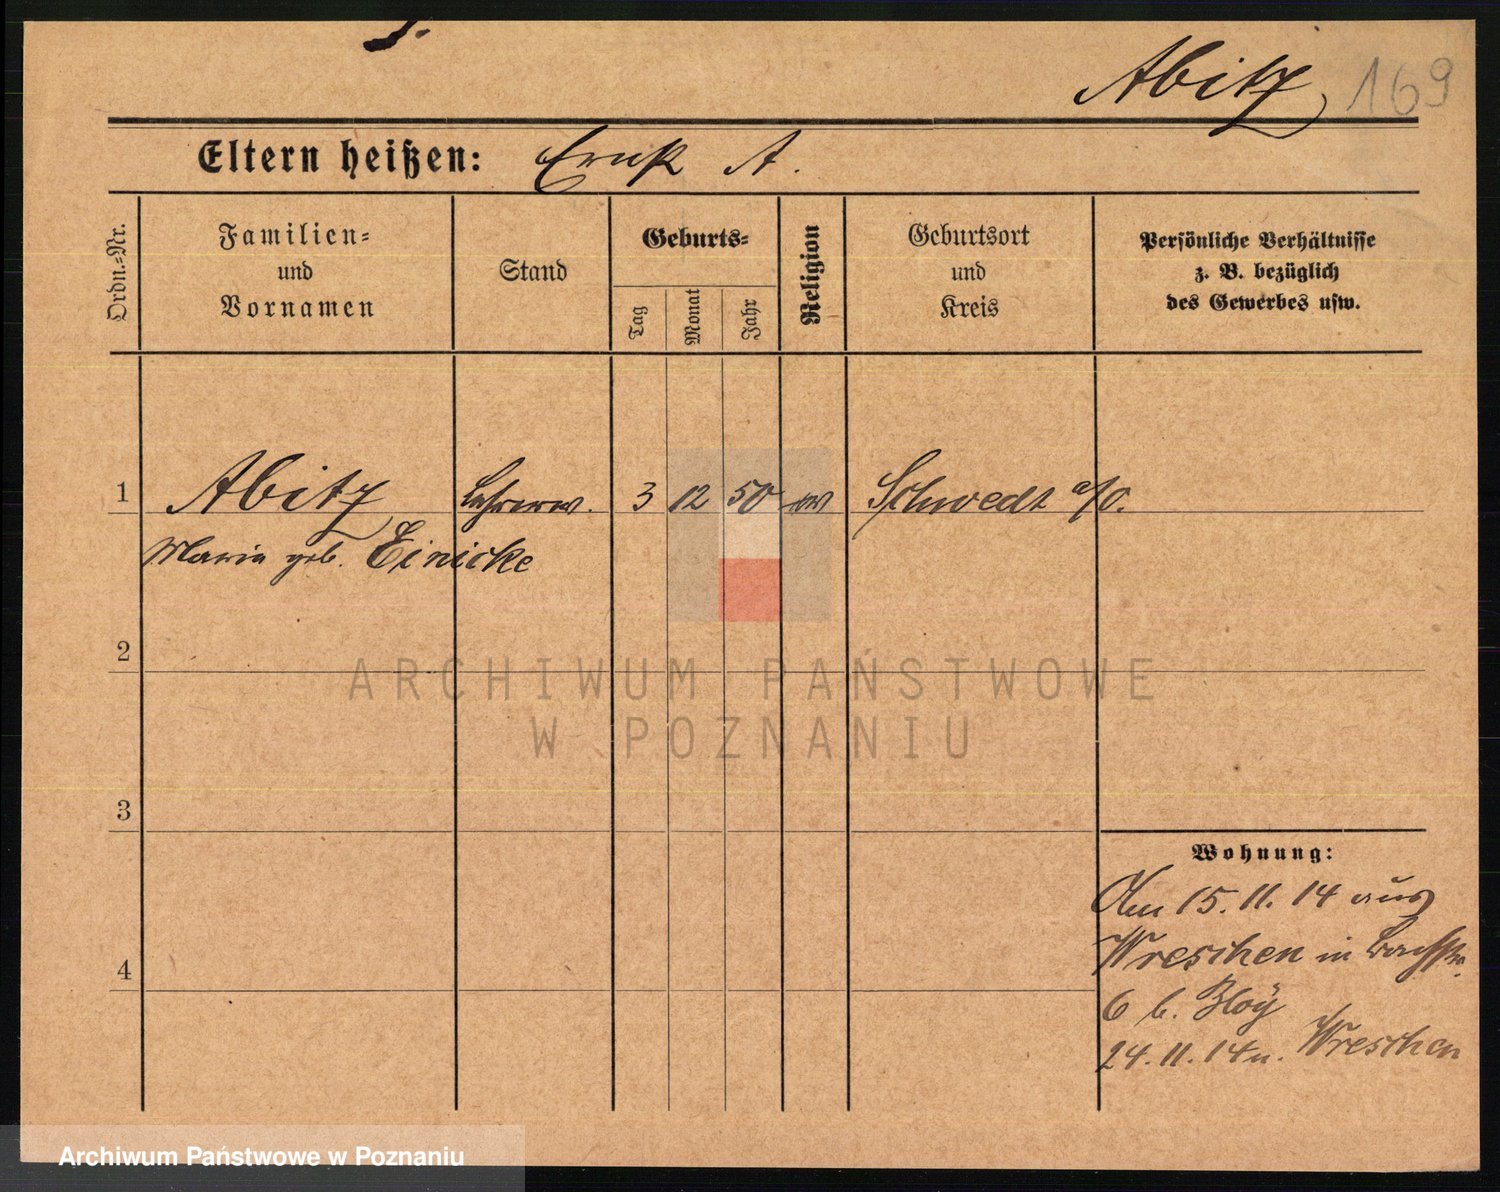 Abitz 169
Eltern heißen: Ernst A.
Ordn.-Nr.
Familien-
und
Vornamen
Stand
Geburts-
Tag
Monat
Jahr
Religion
Geburtsort
und
Kreis
Persönliche Verhältnisse
z. B. bezüglich
des Gewerbes usw.
1 Abitz Lehrerw. 3 12 50 ev Schwedt a/O.
Maria geb. Einicke
2
3
4
Wohnung:
Am 15. 11. 14 aus
Wreschen in
6 b.
24. 11. 14 n. Wreschen
ARCHIWUM PAŃSTWOWE
W POZNANIU
Archiwum Państwowe w Poznaniu